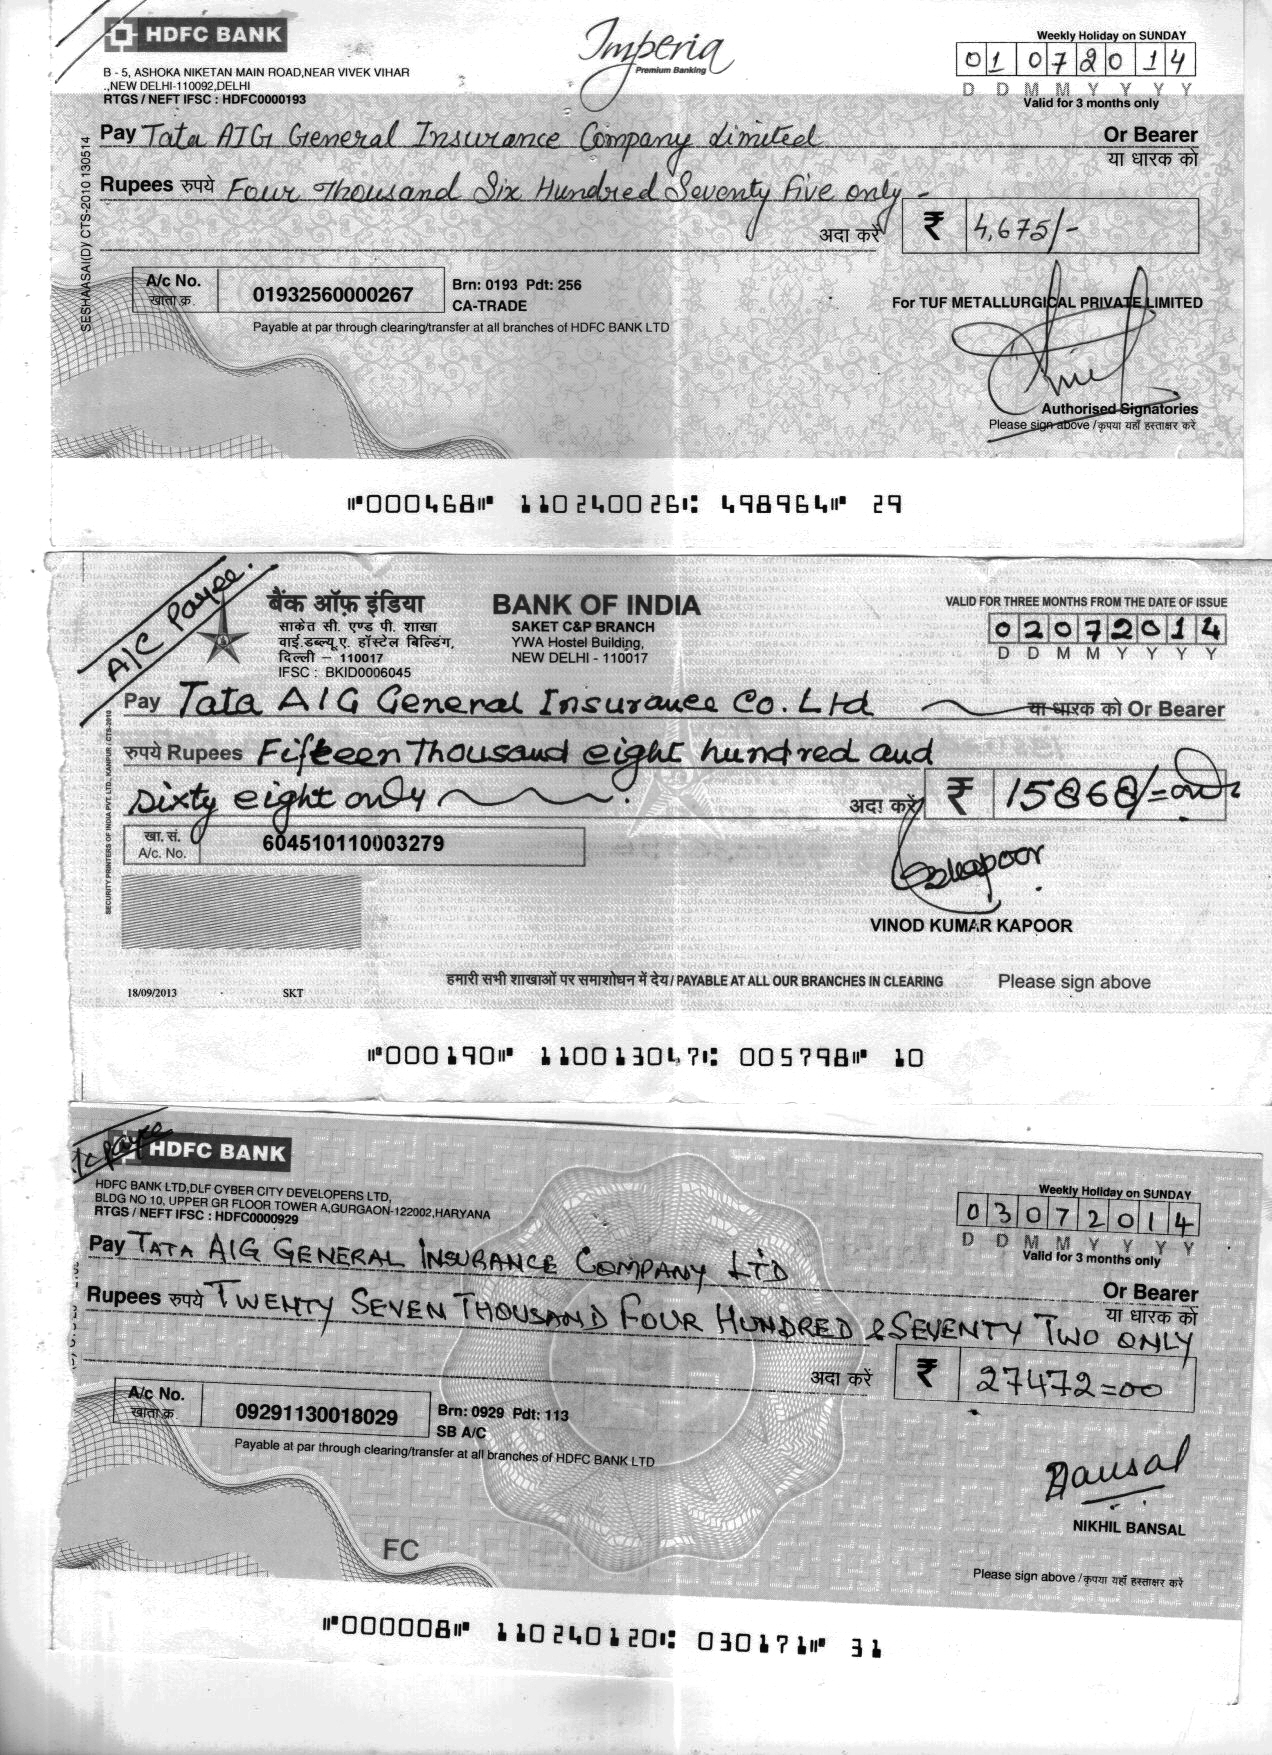 HDFC BANK
Imperia
Premium Banking
Weekly Holiday on SUNDAY
01072014
D D M M Y Y Y Y
Valid for 3 months only
B - 5, ASHOKA NIKETAN MAIN ROAD,NEAR VIVEK VIHAR
.,NEW DELHI-110092,DELHI
RTGS / NEFT IFSC : HDFC0000193
Pay Tata AIG General Insurance Company Limited
Or Bearer
या धारक को
Rupees रुपये Four Thousand Six Hundred Seventy Five only -
अदा करें ₹ 4,675/-
SESHAASAI(D) CTS-2010 130514
A/c No.
खाता क्र.
01932560000267
Brn: 0193 Pdt: 256
CA-TRADE
Payable at par through clearing/transfer at all branches of HDFC BANK LTD
For TUF METALLURGICAL PRIVATE LIMITED
Authorised Signatories
Please sign above / कृपया यहाँ हस्ताक्षर करें
⑈000468⑈ 110240026⑆ 498964⑈ 29
A/C Payee.
बैंक ऑफ़ इंडिया
साकेत सी. एण्ड पी. शाखा
वाई.डब्ल्यू.ए. हॉस्टेल बिल्डिंग,
दिल्ली – 110017
IFSC : BKID0006045
BANK OF INDIA
SAKET C&P BRANCH
YWA Hostel Building,
NEW DELHI - 110017
VALID FOR THREE MONTHS FROM THE DATE OF ISSUE
02072014
D D M M Y Y Y Y
Pay Tata AIG General Insurance Co. Ltd या धारक को Or Bearer
रुपये Rupees Fifteen Thousand eight hundred and
sixty eight only
अदा करें ₹ 15868/=
खा. सं.
A/c. No.
604510110003279
SECURITY PRINTERS OF INDIA PVT. LTD., KANPUR / CTS-2010
VKKapoor
VINOD KUMAR KAPOOR
हमारी सभी शाखाओं पर समाशोधन में देय / PAYABLE AT ALL OUR BRANCHES IN CLEARING
Please sign above
18/09/2013 SKT
⑈000190⑈ 110013047⑆ 005798⑈ 10
A/c payee
HDFC BANK
HDFC BANK LTD,DLF CYBER CITY DEVELOPERS LTD,
BLDG NO 10, UPPER GR FLOOR TOWER A,GURGAON-122002,HARYANA
RTGS / NEFT IFSC : HDFC0000929
Weekly Holiday on SUNDAY
03072014
D D M M Y Y Y Y
Valid for 3 months only
Pay TATA AIG GENERAL INSURANCE COMPANY LTD
Or Bearer
या धारक को
Rupees रुपये TWENTY SEVEN THOUSAND FOUR HUNDRED & SEVENTY TWO ONLY
अदा करें ₹ 27472=00
A/c No.
खाता क्र.
09291130018029
Brn: 0929 Pdt: 113
SB A/C
Payable at par through clearing/transfer at all branches of HDFC BANK LTD
Bansal
NIKHIL BANSAL
FC
Please sign above / कृपया यहाँ हस्ताक्षर करें
⑈000008⑈ 110240120⑆ 030171⑈ 31